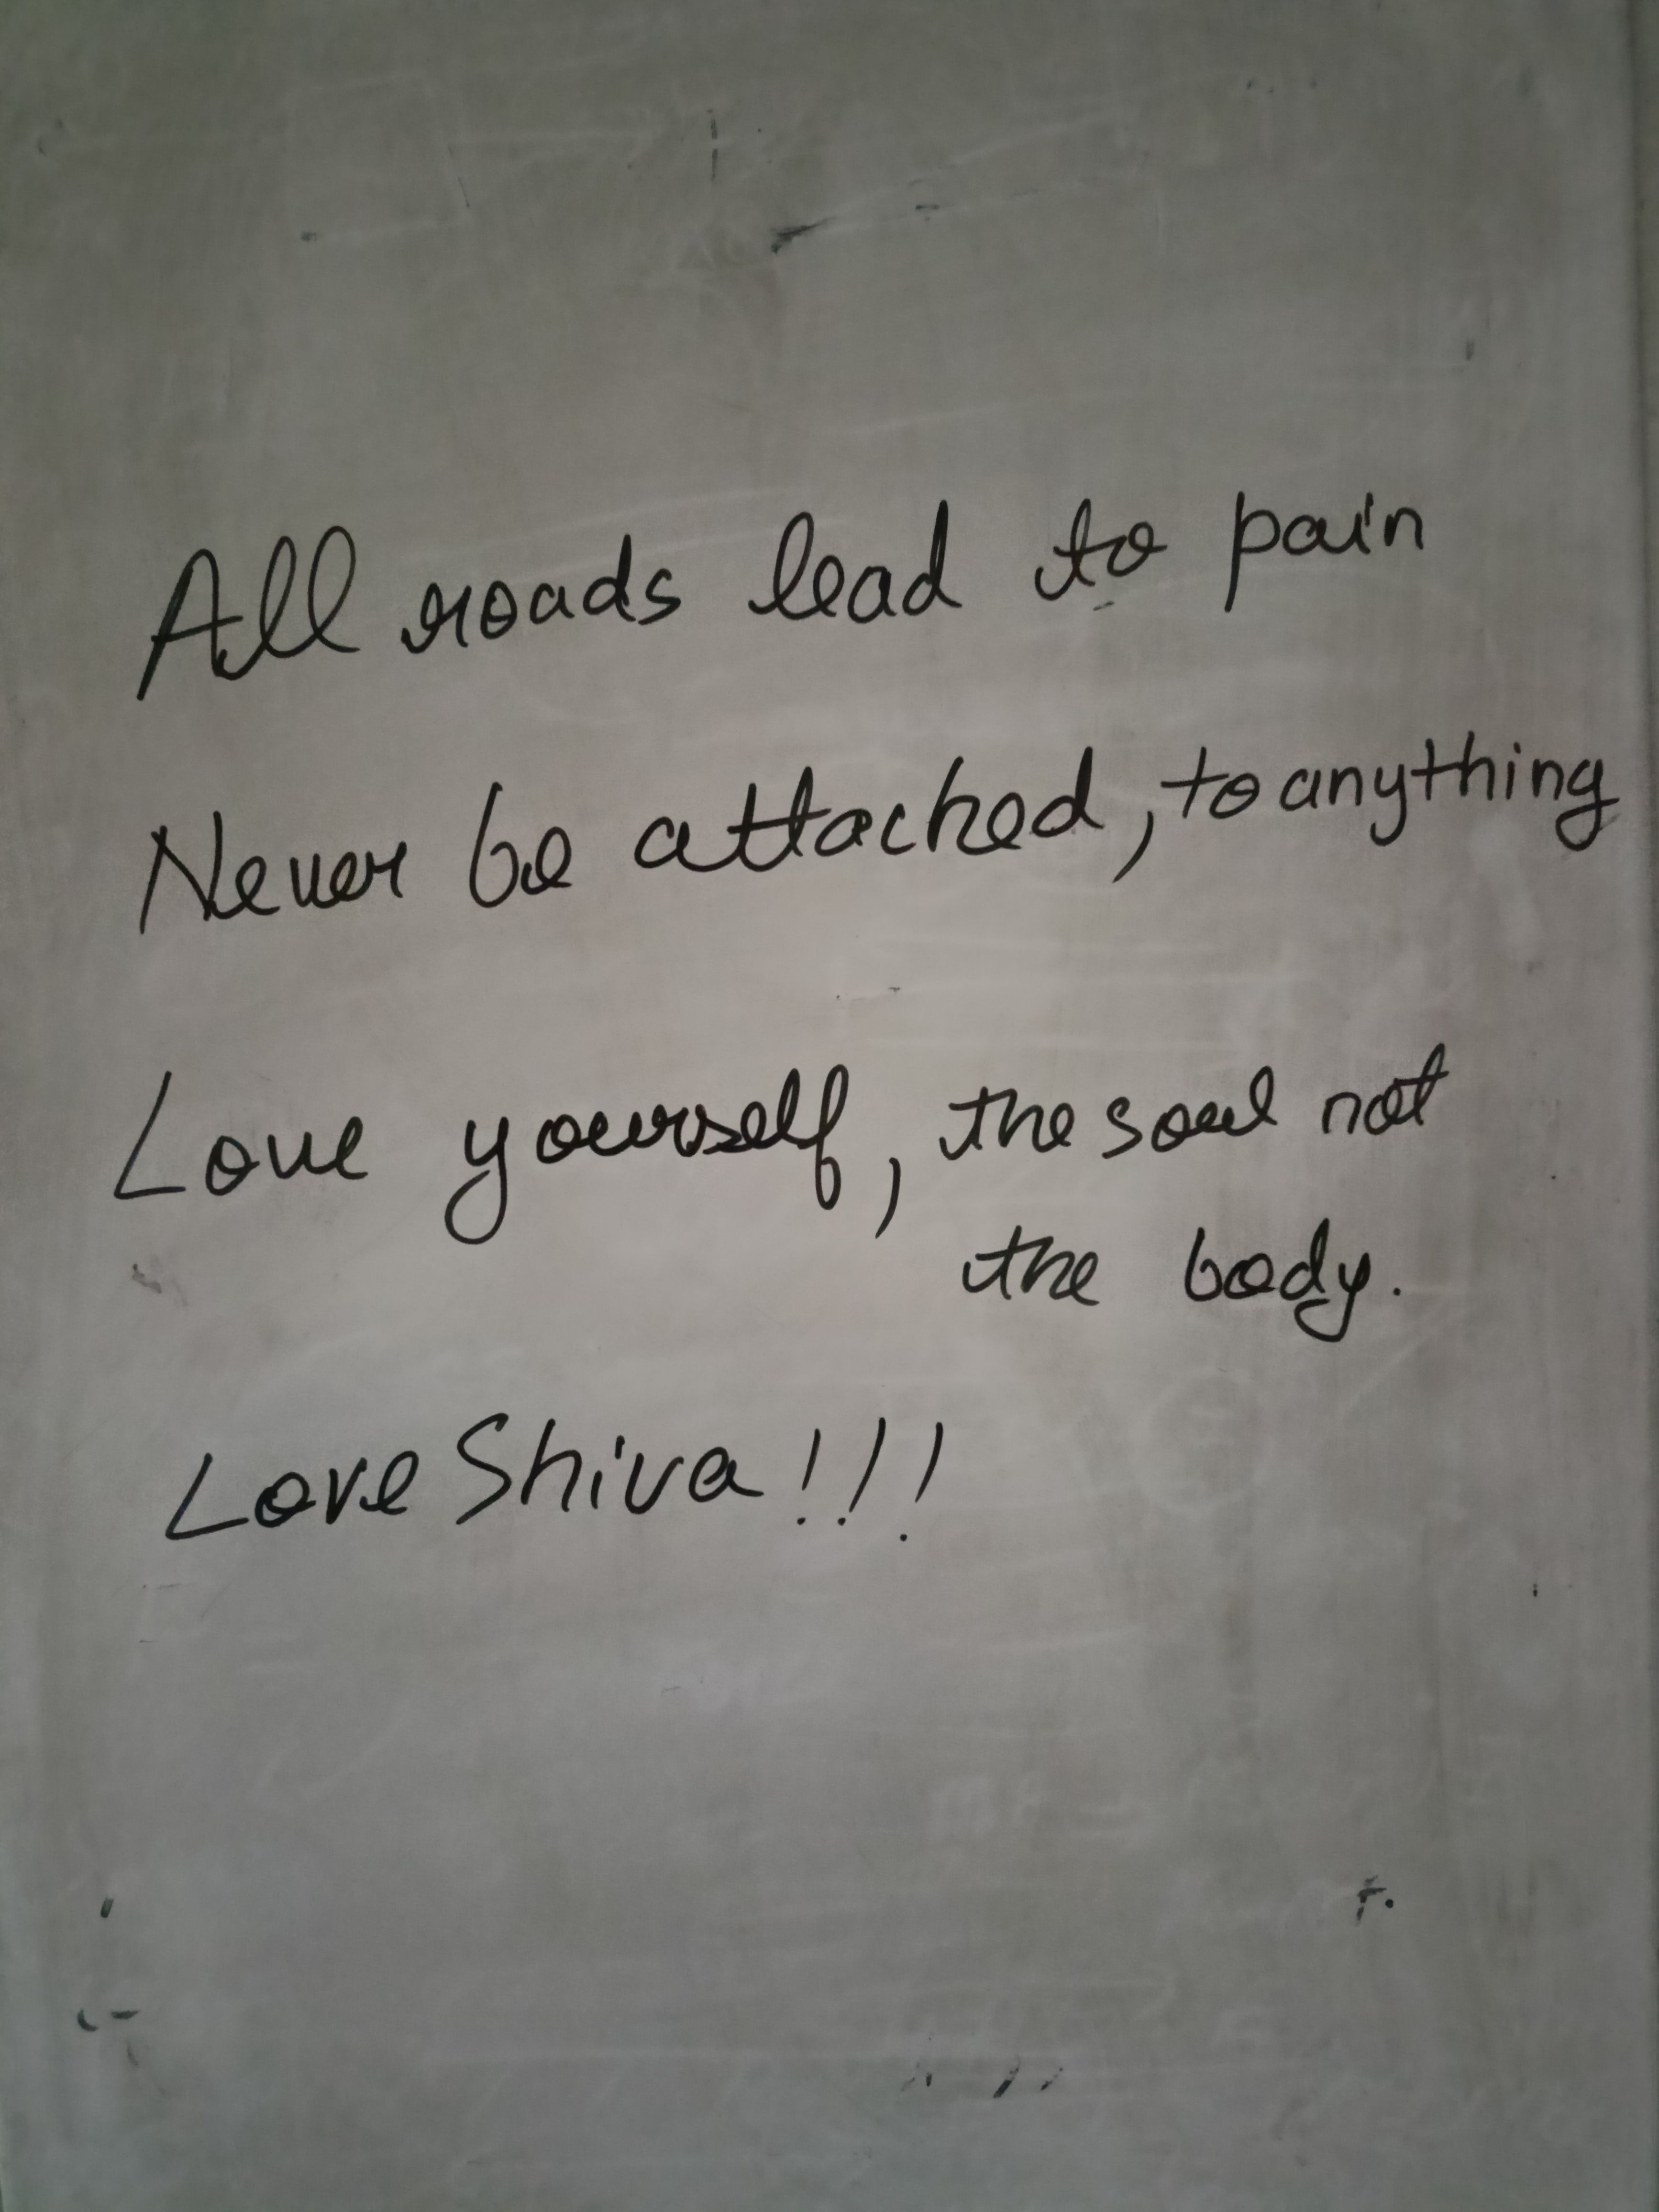 All roads lead to pain
Never be attached, to anything
Love yourself, the soul not
the body.
Love Shiva!!!